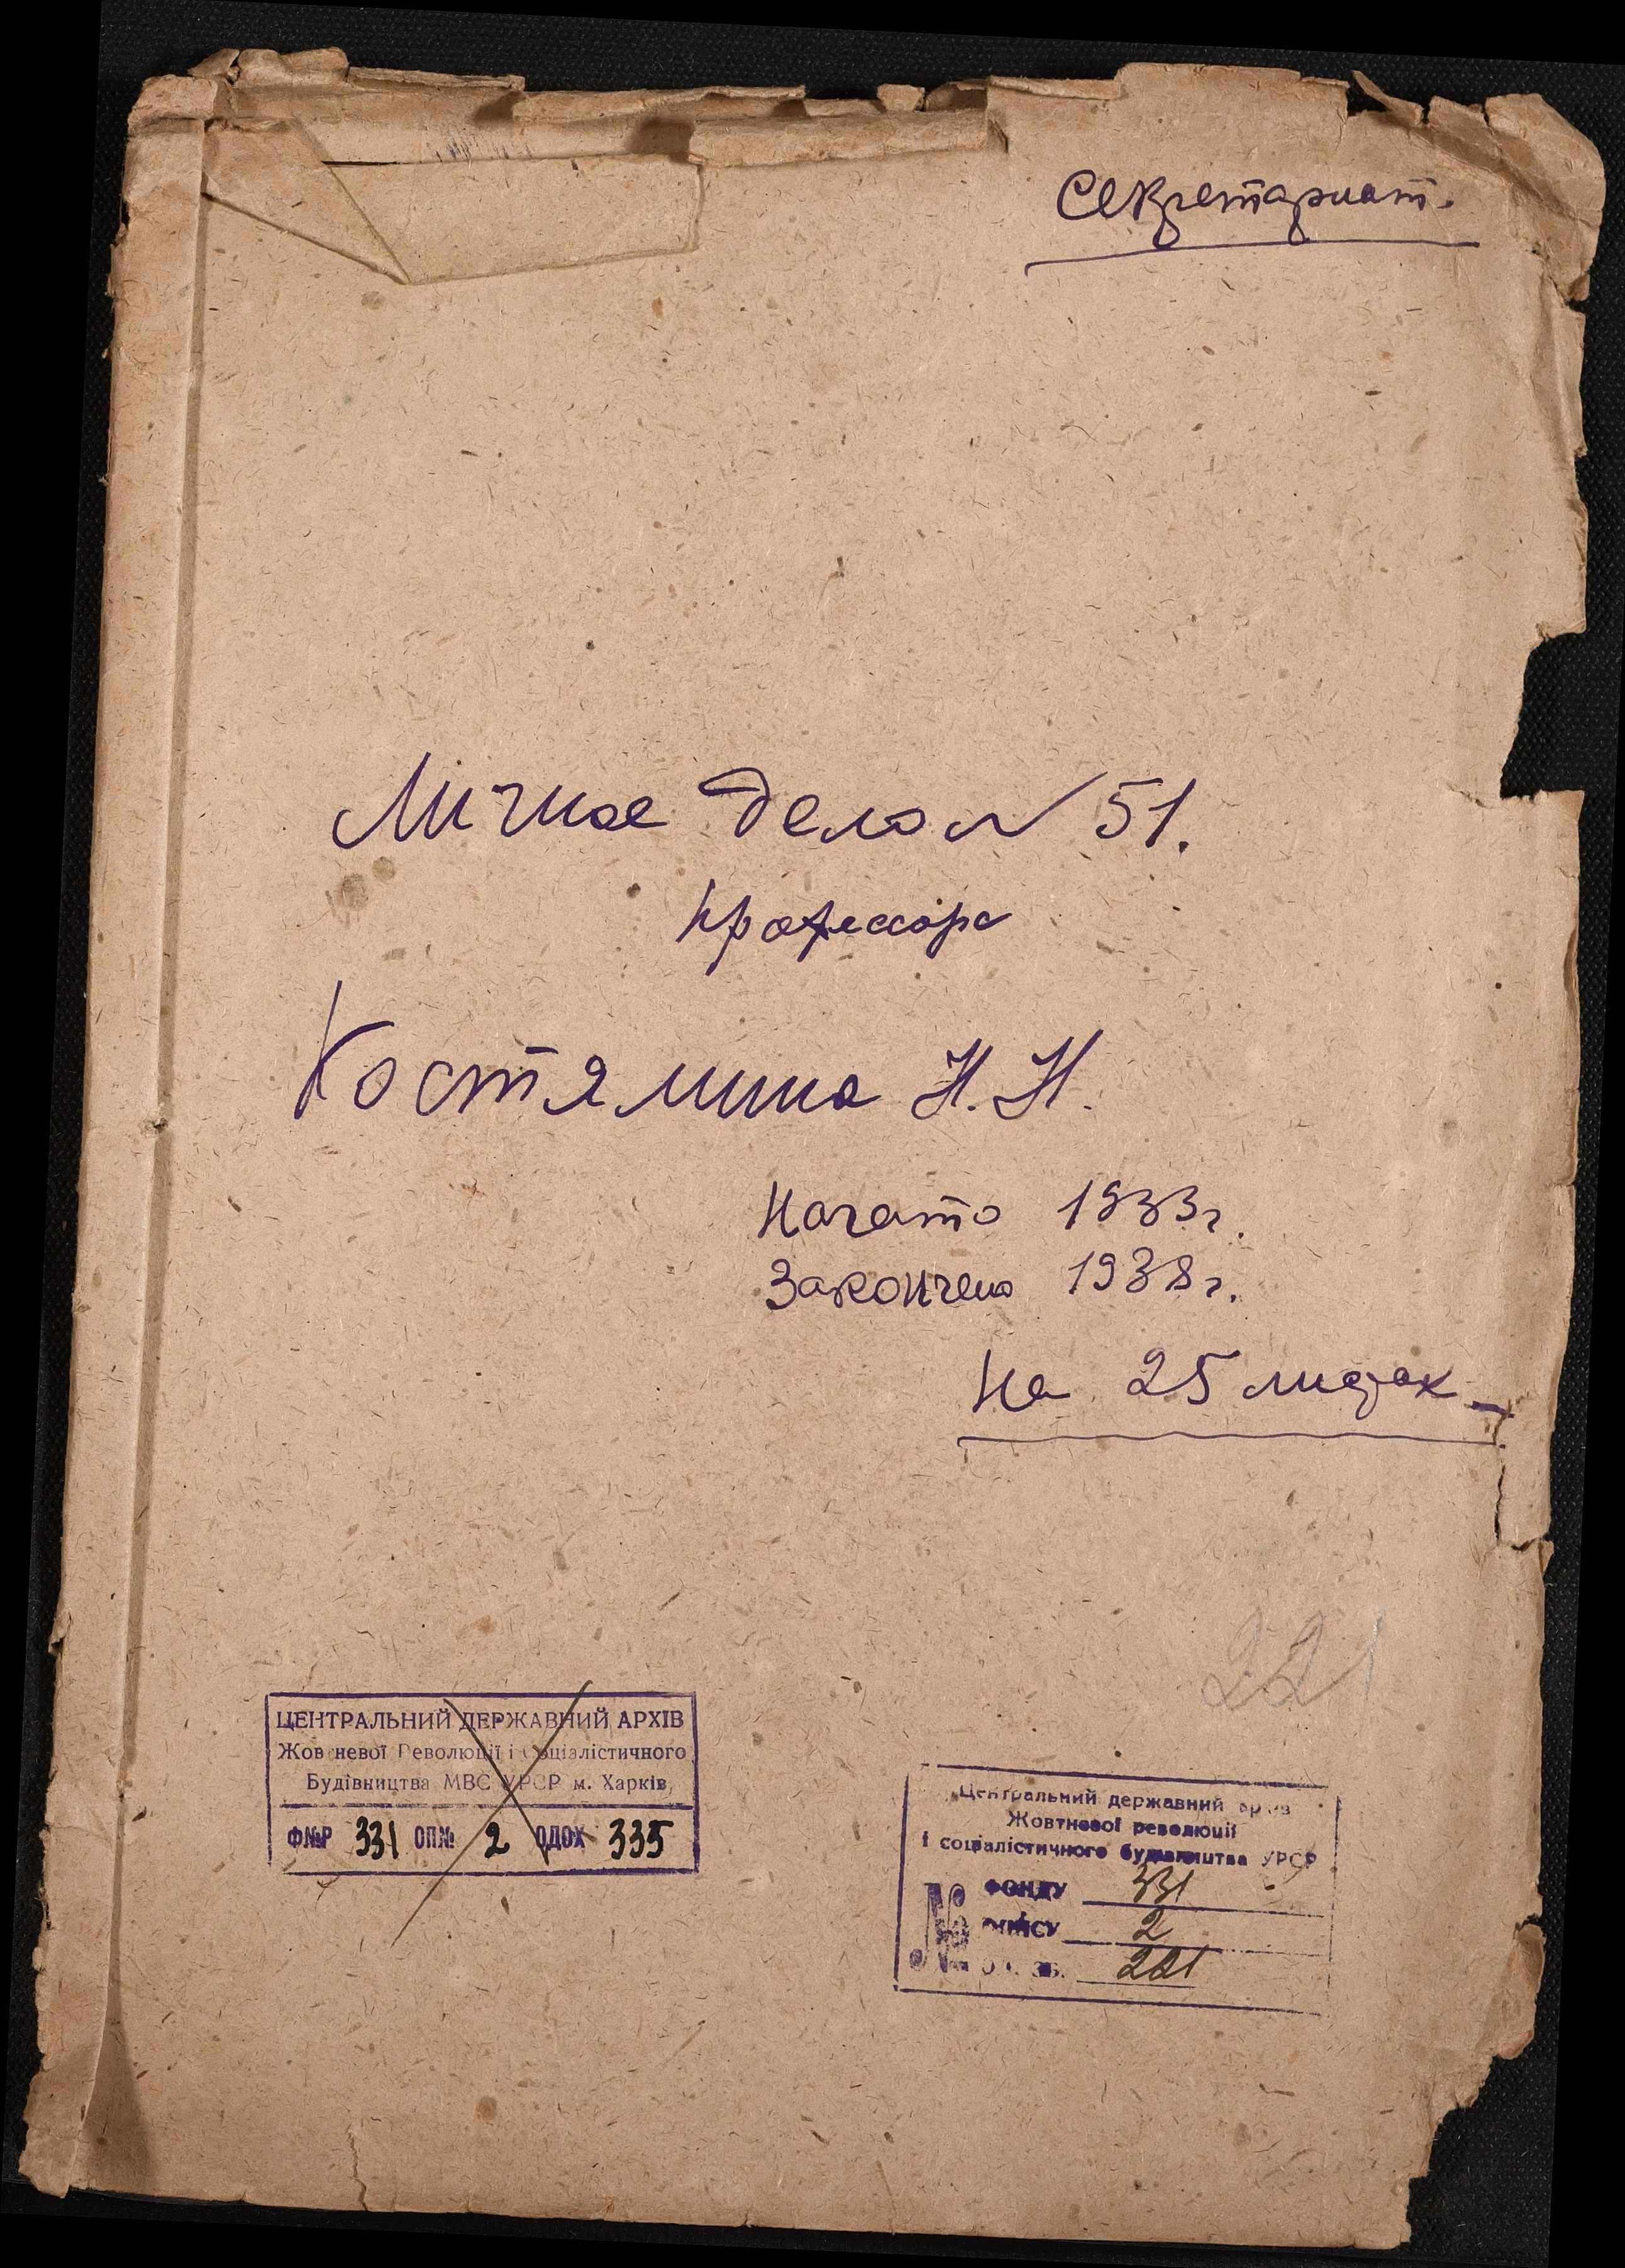 Секретариат.
Личное дело № 51.
профессора
Костямина Н. Н.
Начато 1933 г.
Закончено 1938 г.
На 25 листах
221
ЦЕНТРАЛЬНИЙ ДЕРЖАВНИЙ АРХІВ
Жовтневої Революції і Соціалістичного
Будівництва МВС УРСР м. Харків,
Ф№Р 331 ОП№ 2 ОДОХ 335
Центральний державний архів
Жовтневої революції
і соціалістичного будівництва УРСР
№ ФОНДУ 331
ОПИСУ 2
ОД. ЗБ. 221